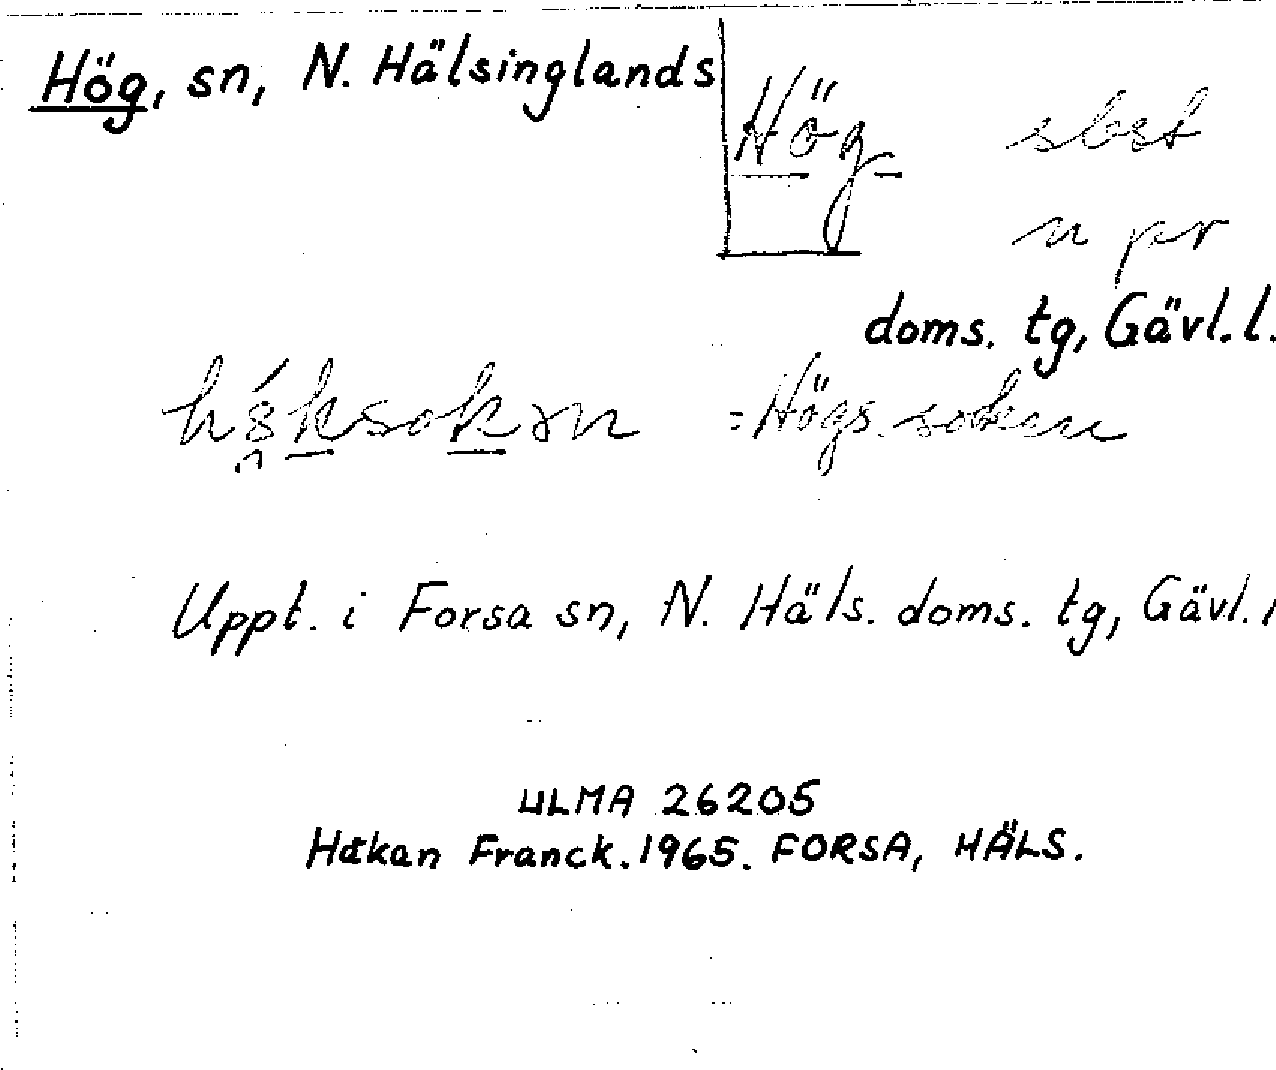 Hög, sn, N. Hälsinglands
Hög sbst
n pr
doms. tg, Gävl. l.
= Högs. socken
Uppt. i Forsa sn, N. Häls. doms. tg, Gävl. l
ULMA 26205
Håkan Franck. 1965. FORSA, HÄLS.